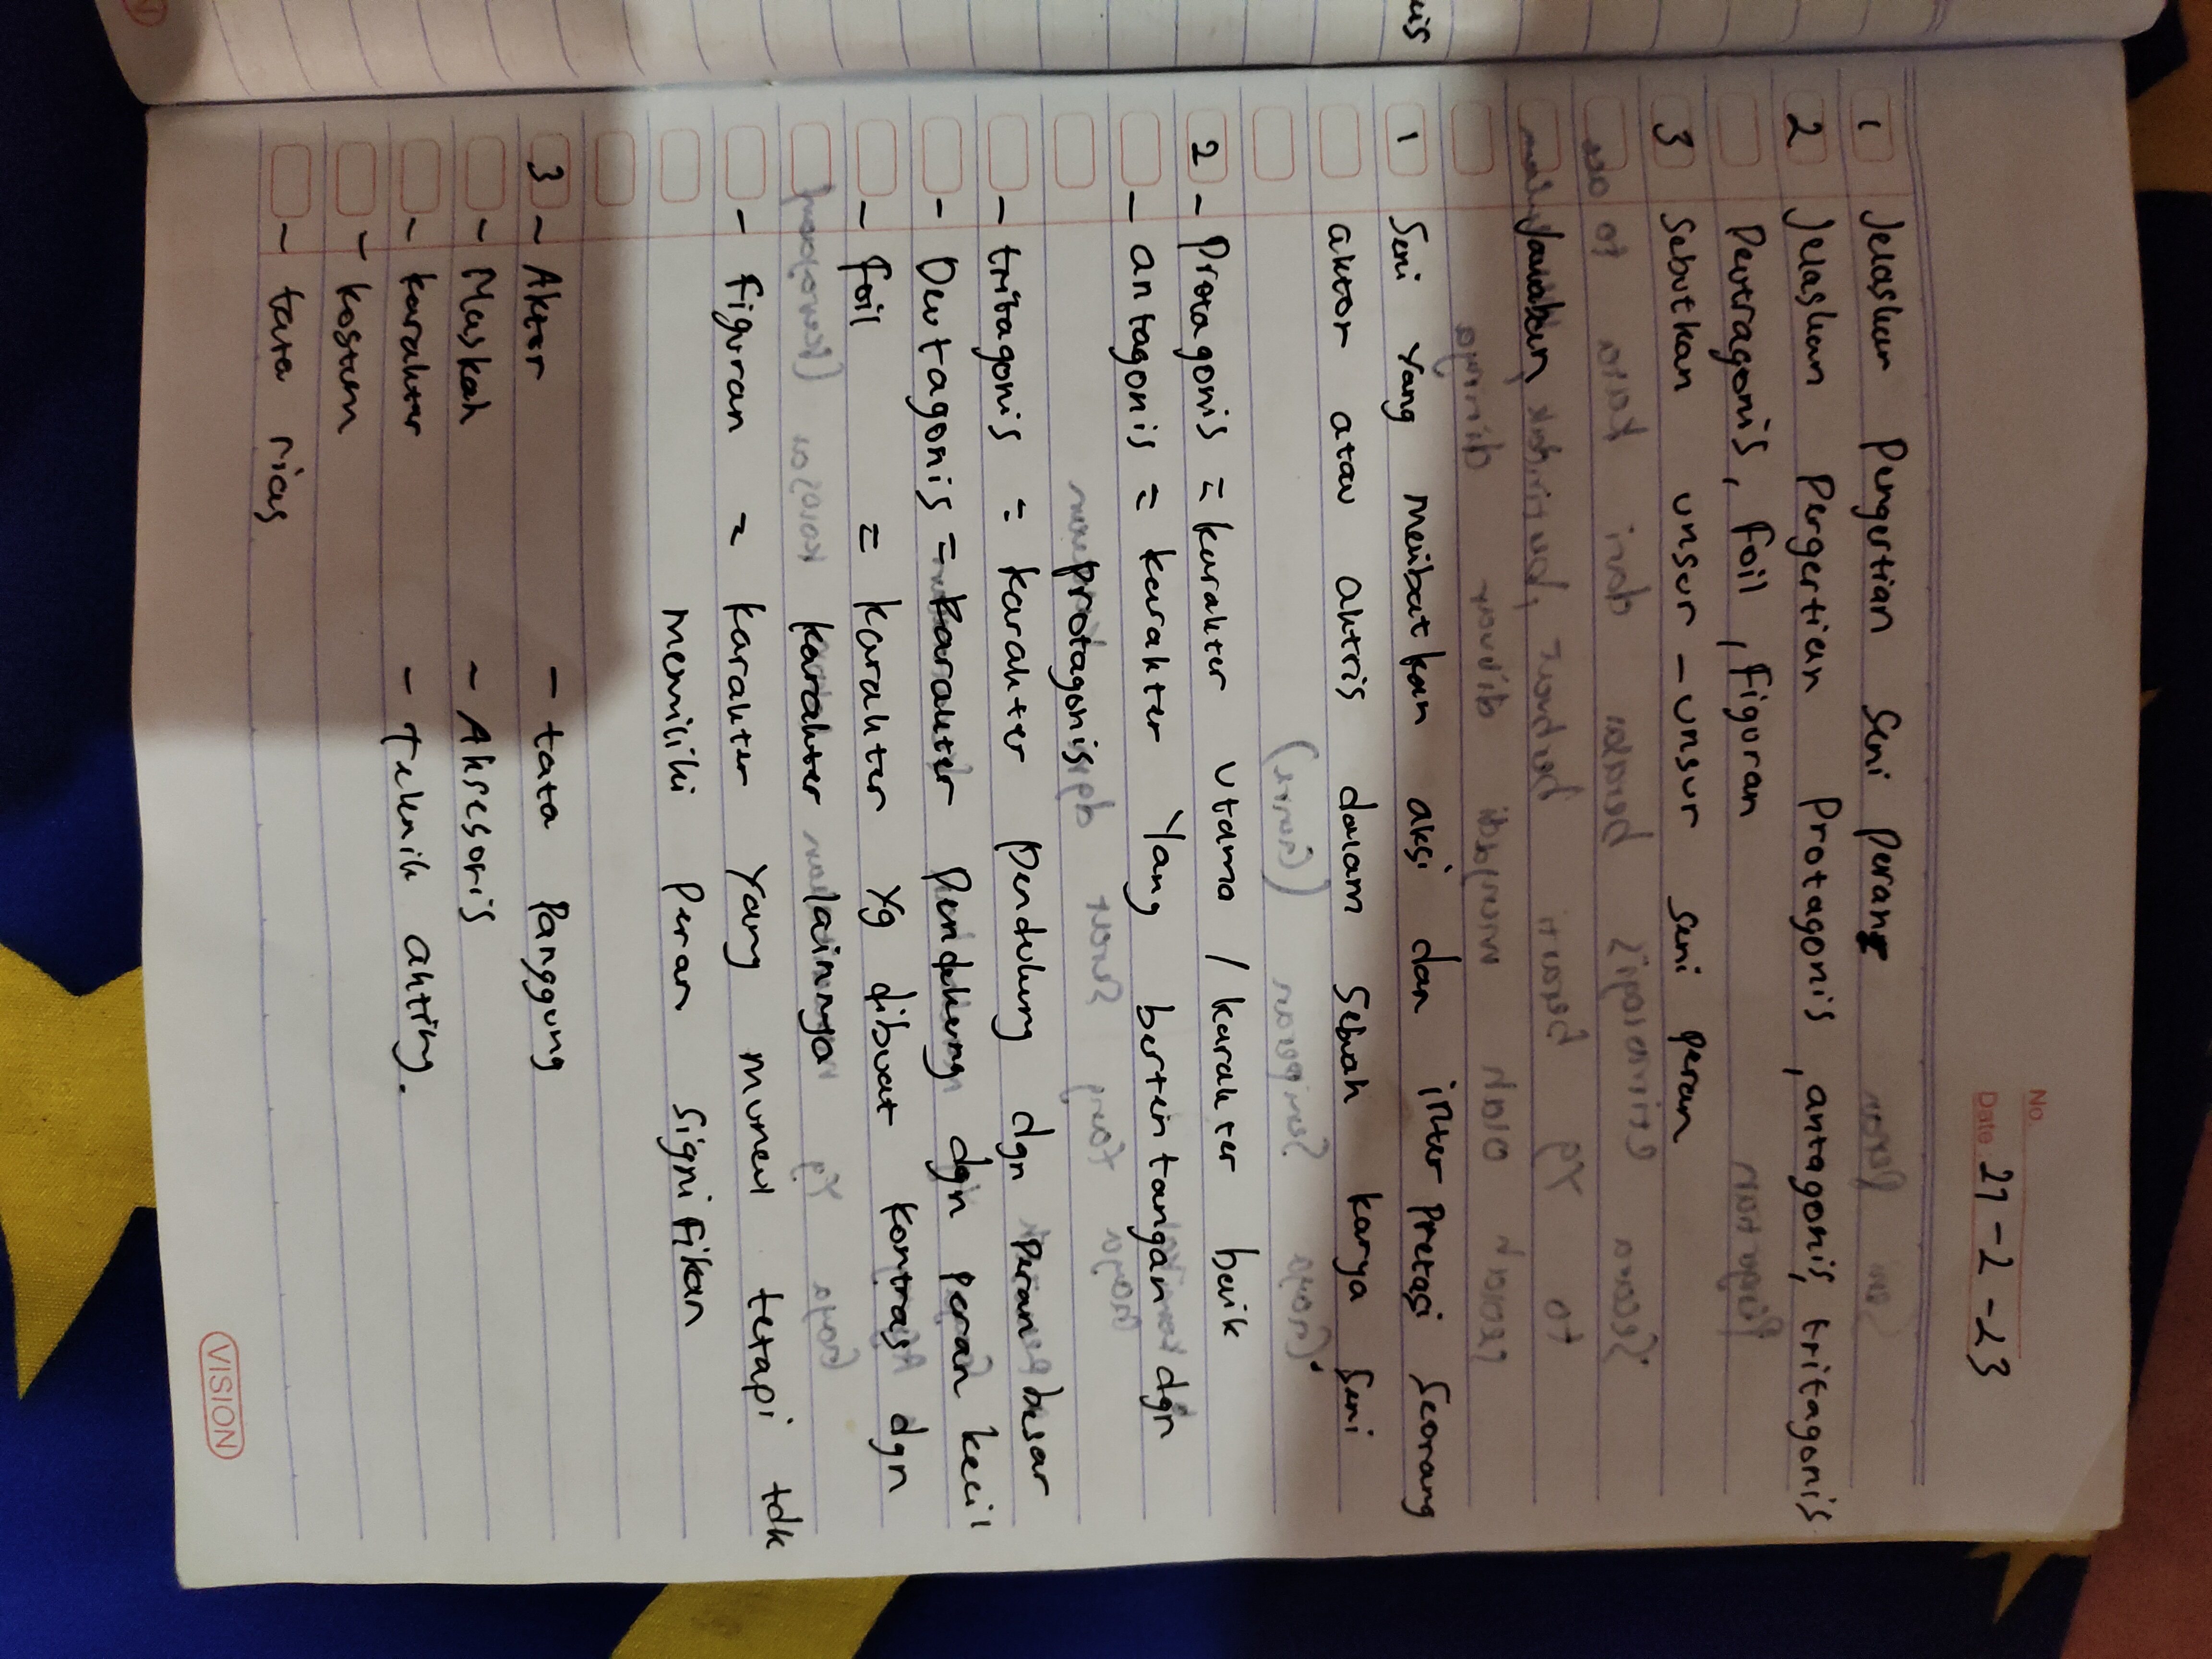 No.
Date. 27-2-23
1 Jelaskan Pengertian Seni Peran
2 Jelaskan Pengertian Protagonis, antagonis, tritagonis
Deutragonis, foil, figuran
3 Sebutkan unsur-unsur seni peran
Jawaban
1 Seni Yang meibatkan aksi dan inter pretasi Seorang
aktor atau aktris dalam Sebuah karya Seni
2 - Protagonis = karakter utama / karakter baik
- antagonis = karakter Yang bertentangan dgn
protagonis
- tritagonis = karakter Pendukung dgn Peran besar
- Deutagonis = karakter Pendukung dgn peran kecil
- foil = karakter Yg dibuat kontras dgn
karakter lainnya
- figuran = karakter Yang muncul tetapi tdk
memiliki Peran Signifikan
3 - Aktor - tata Panggung
- Naskah - Aksesoris
- karakter - Teknik akting.
- kostum
- tata rias
VISION